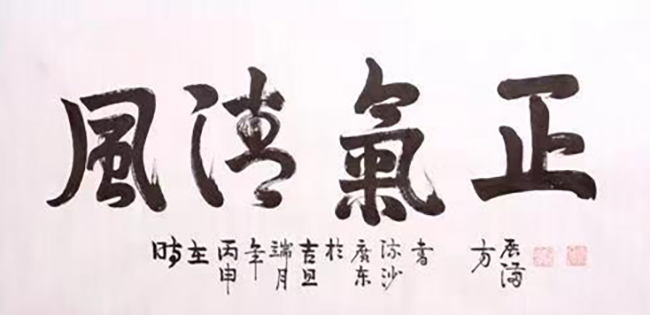 風清氣正
時在丙申年端月吉旦於廣东流沙書
方展